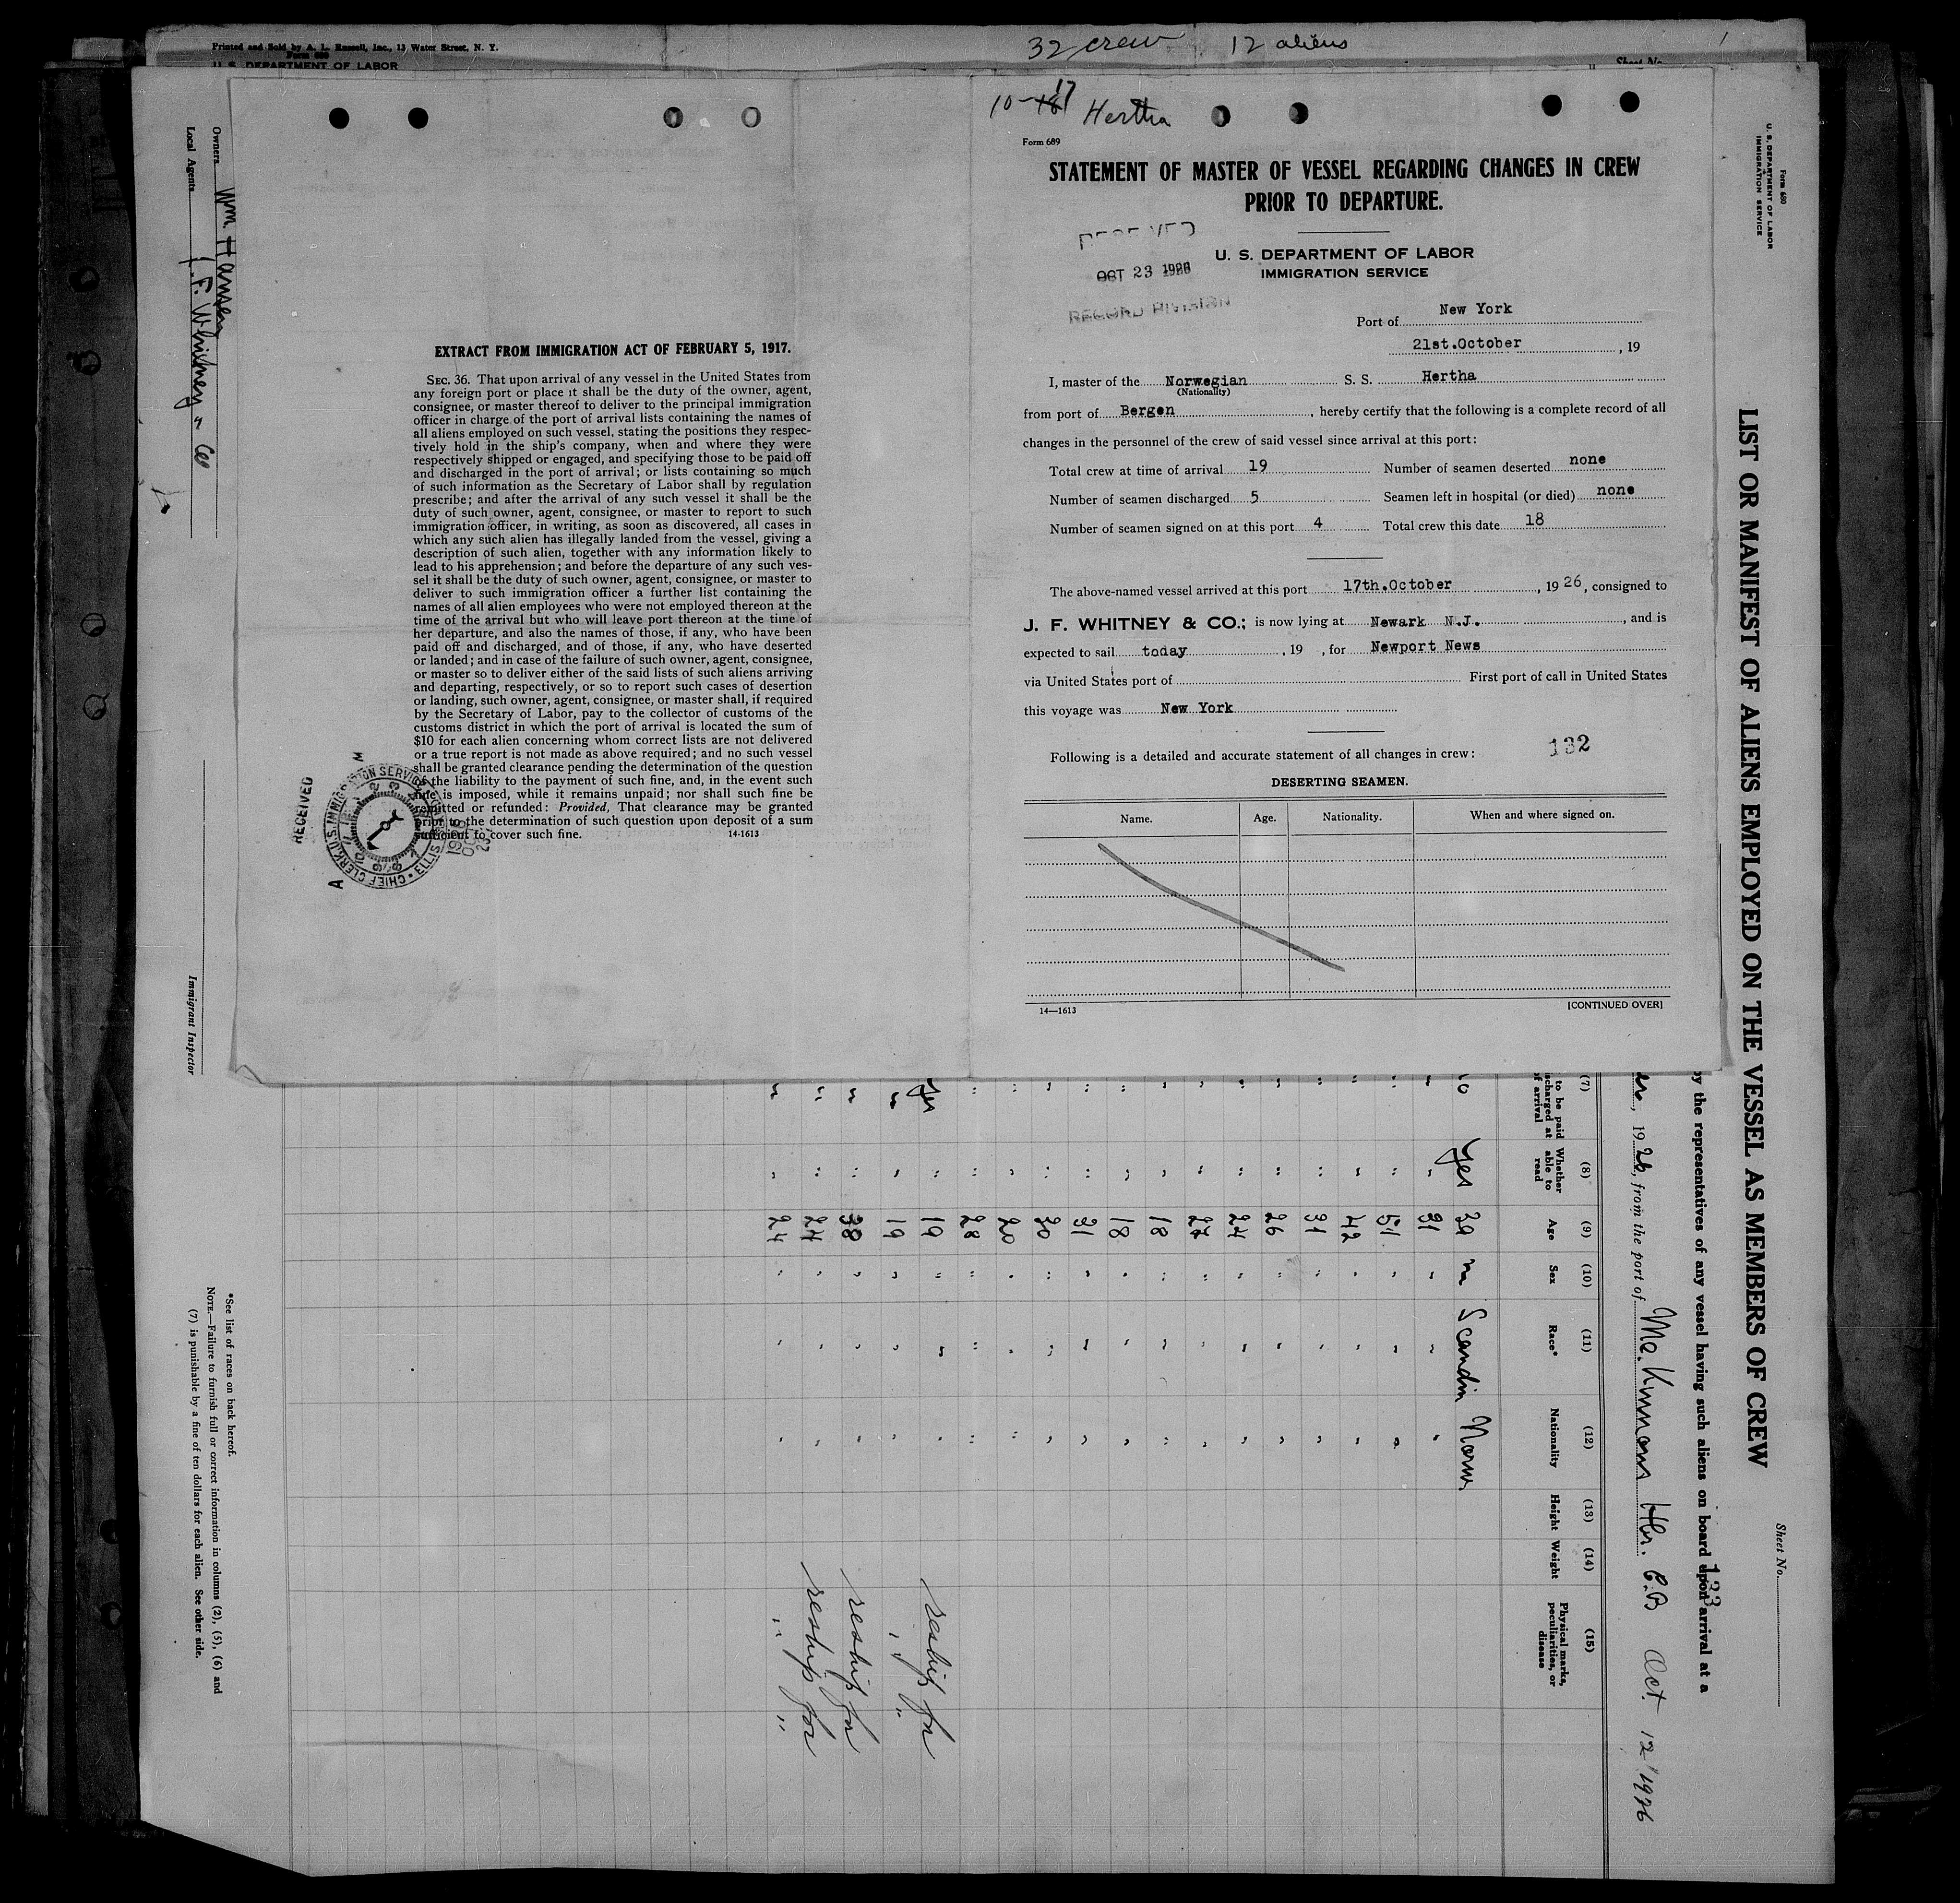 Printed and Sold by A. L. Russell, Inc., 13 Water Street, N. Y.
Form 680
U. S. DEPARTMENT OF LABOR
32 crew 12 aliens
1
Sheet No.
10-17 Hertha
Form 689
STATEMENT OF MASTER OF VESSEL REGARDING CHANGES IN CREW
PRIOR TO DEPARTURE.
RECEIVED
OCT 23 1926
RECORD DIVISION
U. S. DEPARTMENT OF LABOR
IMMIGRATION SERVICE
Port of New York
21st.October , 19
I, master of the Norwegian S. S. Hertha
(Nationality)
from port of Bergen , hereby certify that the following is a complete record of all
changes in the personnel of the crew of said vessel since arrival at this port:
Total crew at time of arrival 19 Number of seamen deserted none
Number of seamen discharged 5 Seamen left in hospital (or died) none
Number of seamen signed on at this port 4 Total crew this date 18
The above-named vessel arrived at this port 17th.October , 19 26, consigned to
J. F. WHITNEY & CO.; is now lying at Newark N.J. , and is
expected to sail today , 19 , for Newport News
via United States port of First port of call in United States
this voyage was New York
Following is a detailed and accurate statement of all changes in crew:
132
DESERTING SEAMEN.
Name. Age. Nationality. When and where signed on.
14—1613
[CONTINUED OVER]
EXTRACT FROM IMMIGRATION ACT OF FEBRUARY 5, 1917.
SEC. 36. That upon arrival of any vessel in the United States from
any foreign port or place it shall be the duty of the owner, agent,
consignee, or master thereof to deliver to the principal immigration
officer in charge of the port of arrival lists containing the names of
all aliens employed on such vessel, stating the positions they respec-
tively hold in the ship's company, when and where they were
respectively shipped or engaged, and specifying those to be paid off
and discharged in the port of arrival; or lists containing so much
of such information as the Secretary of Labor shall by regulation
prescribe; and after the arrival of any such vessel it shall be the
duty of such owner, agent, consignee, or master to report to such
immigration officer, in writing, as soon as discovered, all cases in
which any such alien has illegally landed from the vessel, giving a
description of such alien, together with any information likely to
lead to his apprehension; and before the departure of any such ves-
sel it shall be the duty of such owner, agent, consignee, or master to
deliver to such immigration officer a further list containing the
names of all alien employees who were not employed thereon at the
time of the arrival but who will leave port thereon at the time of
her departure, and also the names of those, if any, who have been
paid off and discharged, and of those, if any, who have deserted
or landed; and in case of the failure of such owner, agent, consignee,
or master so to deliver either of the said lists of such aliens arriving
and departing, respectively, or so to report such cases of desertion
or landing, such owner, agent, consignee, or master shall, if required
by the Secretary of Labor, pay to the collector of customs of the
customs district in which the port of arrival is located the sum of
$10 for each alien concerning whom correct lists are not delivered
or a true report is not made as above required; and no such vessel
shall be granted clearance pending the determination of the question
of the liability to the payment of such fine, and, in the event such
fine is imposed, while it remains unpaid; nor shall such fine be
remitted or refunded: Provided, That clearance may be granted
prior to the determination of such question upon deposit of a sum
sufficient to cover such fine.
14-1613
RECEIVED
A M
CHIEF CLERK, U.S. IMMIGRATION SERVICE ELLIS
1926
OCT
23
Form 680
U. S. DEPARTMENT OF LABOR
IMMIGRATION SERVICE
Sheet No.
LIST OR MANIFEST OF ALIENS EMPLOYED ON THE VESSEL AS MEMBERS OF CREW
133
by the representatives of any vessel having such aliens on board upon arrival at a
, 1926, from the port of Me. Kinmans Hbr. C.B Oct 12 1926
(7) (8) (9) (10) (11) (12) (13) (14) (15)
to be paid
discharged at
of arrival
Whether able to read
Age
Sex
Race*
Nationality
Height
Weight
Physical marks, peculiarities, or disease
no yes 39 m Scandin Norw.
" " 31 " " "
" " 51 " " "
" " 42 " " "
" " 31 " " "
" " 26 " " "
" " 24 " " "
" " 27 " " "
" " 18 " " "
" " 18 " " "
" " 31 " " "
" " 30 " " "
" " 20 " " "
" " 28 " " "
yes " 19 " " " reship fn
" " 19 " " " " "
" " 38 " " " reship fn
" " 24 " " " reship for
" " 24 " " " " "
Owners Wm. Hansen
Local Agents J. F. Whitney & Co
Immigrant Inspector
*See list of races on back hereof.
NOTE.—Failure to furnish full or correct information in columns (2), (5), (6) and
(7) is punishable by a fine of ten dollars for each alien. See other side.